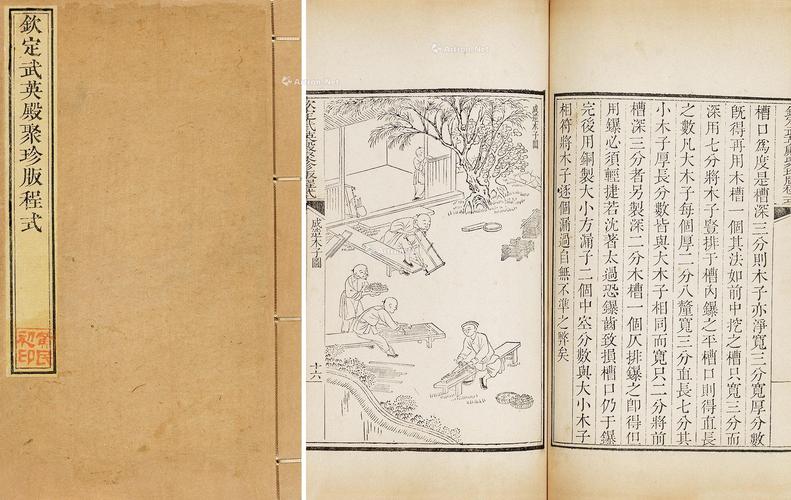 欽定武英殿聚珍版程式
槽口爲度是槽深三分則木子亦淨寬三分寬厚分數
旣得再用木槽一個其法如前中挖之槽只寬三分而
深用七分將木子豎排于槽內鏍之平槽口則得直長
之數凡大木子每個厚二分八釐寬三分直長七分其
小木子厚長分數皆與大木子相同而寬只二分將前
槽深三分者另製深二分木槽一個仄排鏍之卽得但
用鏍必須輕捷若沈著太過恐鏍齒致損槽口仍于鏍
完後用銅製大小方漏子二個中空分數與大小木子
相符將木子逐個漏過自無不準之弊矣
成造木子圖
欽定武英殿聚珍版程式
成造木子圖
十六
Artron.Net
Artron.Net